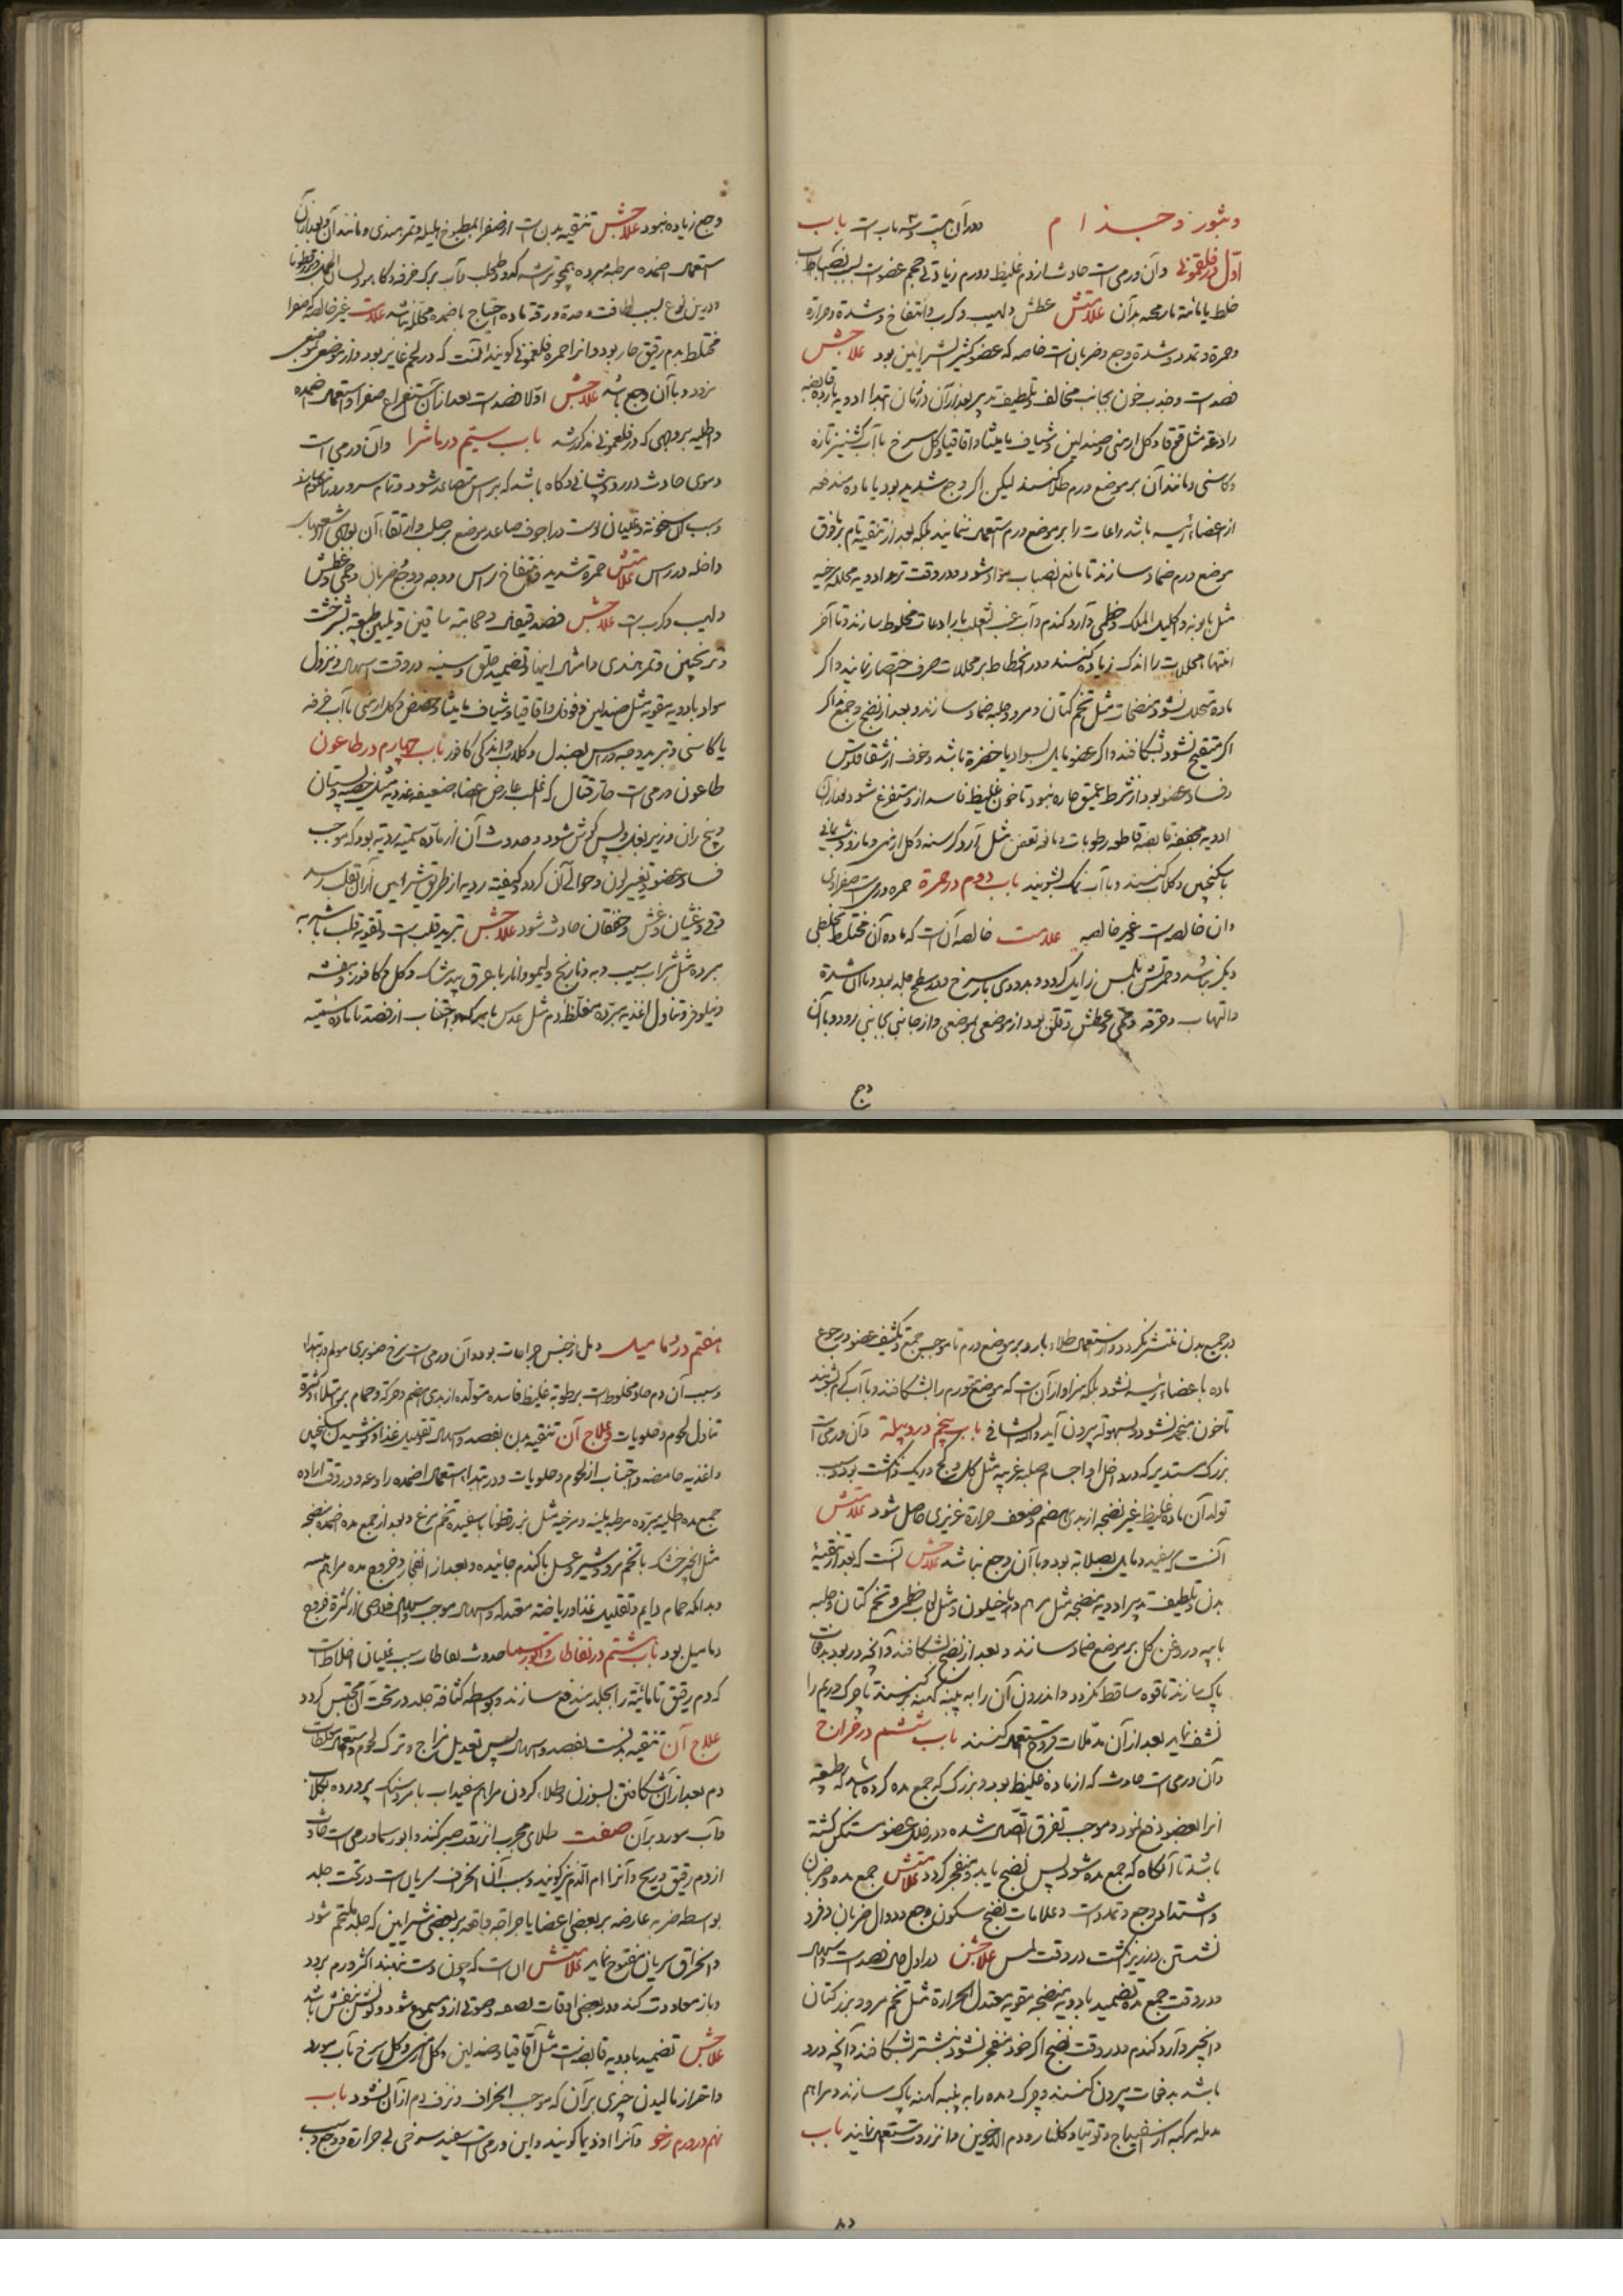 و بثور و جذام و در آن بیست و سه باب است باب
اول در فلغمونی و آن ورمی است حادث از دم غلیظ و ورم زیادتی حجم عضو است بسبب انصباب
خلط یا مائیة یا ریحیه بدان علامتش عطش و لهیب و کرب و انتفاخ و شدة حرارة
و حمرة و تمدد و شدة وجع و ضربان است خاصه که عضو کثیر الشرایین بود علاجش
فصد است و جذب خون بجانب مخالف و تلطیف تدبیر بعد از آن در زمان ابتدا ادویه بارده قابضه
رادعه مثل فوفل و کل ارمنی و صندلین و شیاف مامیثا و اقاقیا و کل سرخ با آب کشنیز تازه
و کاسنی و مانند آن بر موضع ورم طلا کنند لیکن اکر وجع شدید بود یا ماده مندفعه
از اعضاء رئیسه باشد رادعات را بر موضع ورم استعمال ننمایند بلکه بعد از تنقیه تام بر فوق
موضع ورم ضماد سازند تا مانع انصباب مواد شود و در وقت تزید ادویه محلله مرخیه
مثل بابونه و اکلیل الملک و خطمی و آرد کندم و آب عنب الثعلب با رادعات مخلوط سازند و تا آخر
انتها محللات را اندک زیاده کنند و در انحطاط بر محللات صرف اختصار نمایند و اکر
ماده متحلل نشود منضجات مثل تخم کتان و مرو و حلبه ضماد سازند و بعد از نضج و جمع مده اکر
اکر منفتح نشود بشکافند و اکر عضو مایل بسواد یا خضرة باشد و خوف از شقاقلوس
و فساد عضو بود از شرط عمیق چاره نبود تا خون غلیظ فاسد از او مستفرغ شود و بعد از آن
ادویه مجففه قابضه قاطعه رطوبات و مانعه تعفن مثل آرد کرسنه و کل ارمنی و مازو و شب یمانی
با سکنجبین و کلاب کنند و با آب نمک بشویند باب دوم در حمرة حمره ورمی است صفراوی
و آن خالصه است و غیر خالصه علامت خالصه آن است که ماده آن مختلط بخلطی
دیکر نباشد و حمرتش بلمس زایل کردد و بزودی باز سرخ و در سطح جلد بود و با آن شدة
و التهاب و حرقه و حمی و عطش و قلق بود از موضعی بموضعی و از جانبی بجانبی رود و با آن
وجع
وجع زیاده نبود علاجش تنقیه بدن است از صفرا بمطبوخ هلیله و تمر هندی و مانند آن و بعد از آن
استعمال اضمده مرطبه مبرده همچو تراشه کدو و طحلب و آب برک خرفه و کاهو و لسان الحمل و بزرقطونا
و درین نوع بسبب لطافت و حدة و رقة ماده احتیاج باضمده محلله نباشد علامت غیر خالصه که صفرا
مختلط بدم رقیق حار بود و آنرا حمره فلغمونی کویند آنست که در لحم غایر بود و از موضعی بموضعی
نرود و با آن وجع باشد علاجش اولا فصد است بعد از آن استفراغ صفرا و استعمال اضمده
و اطلیه بر وجهی که در فلغمونی مذکور شد باب سیم در ماشرا و آن ورمی است
دموی حادث در رو و پیشانی و کاه باشد که بر اس متصاعد شود و تمام سر و رو را متورم سازد
و سبب آن سخونة و غلیان خون است در اجوف صاعد موضع بر صلب و ارتقاء آن بواسطه شعبها
داخله در راس علامتش حمرة شدید و انتفاخ راس و وجه و وجع و ضربان و حمی و عطش
و لهیب و کرب است علاجش فصد قیفال و حجامة ساقین و تلیین طبیعة بشیرخشت
و ترنجبین و تمر هندی و امثال اینها و تضمید حلق و سینه در وقت اسهال و نزول
مواد بادویه مقویه مثل صندلین و فوفل و اقاقیا و شیاف مامیثا و حضض و کل ارمنی با آب خرفه
یا کاسنی و تبرید وجه و راس بصندل و کلاب و اندکی کافور باب چهارم در طاعون
طاعون ورمی است حار قتال که اغلب عارض اعضاء ضعیفه غددیه مثل خصیه و پستان
و بیخ ران و زیر بغل و پس کوش شود و حدوث آن از مادّه سمیّه ردیّه بود که موجب
فساد عضو و تغییر لون و حوالی آن کردد و کیفیة ردیه از طریق شرایین از آن بقلب رسد
و قی و غثیان و غشی و خفقان حادث شود علاجش تبرید قلب است و تقویة قلب باشربه
مبرده مثل شراب سیب و به و نارنج و لیمو و انار با عرق بیدمشک و کل و کافور و بنفشه
و نیلوفر و تناول اغذیه مبرّده مغلظه دم مثل عدس با سرکه و اجتناب از فصد تا ماده سمّیّه
در جمیع بدن منتشر نکردد و از استعمال طلاء بارد بر موضع ورم تا موجب جمع و تکثیف عضو و رجوع
ماده باعضاء رئیسه نشود بلکه سزاوار آن است که موضع متورم را بشکافند و با آب کرم بشویند
تا خون منجمد نشود و بسهولة بیرون آید والله الشافی باب پنجم در دبیلة و آن ورمی است
بزرک مستدیر که در داخل او اجسام صلبه غریبه مثل کل و کج و ریک و انکشت بود و سبب
تولد آن ماده غلیظ غیر نضجه از بدی هضم و ضعف حرارة غریزی حاصل شود علامتش
آنست که سفید و مایل بصلابة بود و با آن وجع نباشد علاجش آنست که بعد از تنقیه
بدن و تلطیف تدبیر ادویه منضجه مثل مرهم داخیلون و مثل لعاب خطمی و تخم کتان و حلبه
با پیه و روغن کل بر موضع ضماد سازند و بعد از نضج بشکافند و آنچه در او بود بدفعات
پاک سازند تا قوه ساقط نکردد و اندرون آن را به پنبه کهنه پر کنند تا چرک و ریم را
نشف نماید بعد از آن مدملات قروح استعمال کنند باب ششم در خراج
و آن ورمی است حادث که از ماده غلیظ بود و بزرک که جمع مده کرده باشد که طبیعة
آنرا بعضو دفع نمود و موجب تفرق اتصال شده و در خلال عضو متمکن کشته
باشد تا آنکاه که جمع مده شود پس نضج یابد و منفجر کردد علامتش جمع مده و ضربان
و اشتداد وجع و تمدد است و علامات نضج سکون وجع و زوال ضربان و فرو
نشستن در زیر انکشت در وقت لمس علاجش در اول حال فصد است و اسهال
و در وقت جمع مده تضمید بادویه منضجه مقویه معتدل الحرارة مثل تخم مرو و بزر کتان
و انجیر و آرد کندم و در وقت نضج اکر خود منفجر نشود بنیشتر بشکافند و آنچه درو
باشد بدفعات بیرون کنند و چرک و مده را به پنبه کهنه پاک سازند و مراهم
مدمله مرکبه از اسفیداج و توتیا و کلنار و دم الاخوین و انزروت استعمال نمایند باب
هفتم در دمامیل دمل از جنس جراحات بود و آن ورمی است سرخ صنوبری مولم در ابتدا
و سبب آن دم حاد مخلوط است برطوبة غلیظ فاسده متولده از بدی هضم و حرکة و حمام بر امتلاء و کثرة
تناول لحوم و حلویات و علاج آن تنقیه بدن بفصد و اسهال و تقلیل غذا و نوشیدن سکنجبین
و اغذیه حامضه و اجتناب از لحوم و حلویات و در ابتداء استعمال اضمده رادعه و در وقت اراده
جمع مده اطلیه مبرّده مرطبه ملینه و مرخیه مثل بزرقطونا با سفیده تخم مرغ و بعد از جمع مده اضمده منضجه
مثل انجیر خشک با تخم مرو و شیر و عسل یا کندم خائیده و بعد از انفجار و خروج مده مراهم
و بدانکه حمام دایم و تقلیل غذا و ریاضة معتدله و اسهال موجب خلاصی از کثرة خروج
دمامیل بود باب هشتم در نفاطات و انورسما حدوث نفاطات بسبب غلیان اخلاط است
که دم رقیق تا مائیة را بجلد مندفع سازند و بواسطه کثافة جلد در تحت آن محتبس کردد
علاج آن تنقیه بدنست بفصد و اسهال پس تعدیل مزاج و ترک لحوم و استعمال مغلظات
دم بعد از آن شکافتن بسوزن و طلاء کردن مراهم سفیداب یا مرداسنک پرورده بکلاب
و آب مورد بر آن صفت طلای مجرب انزروت صبر کندر و انورسما ورمی است حادث
از دم رقیق و ریح و آنرا ام الدم نیز کویند و سبب آن انخراق شریان است در تحت جلد
بواسطه ضربه عارضه بر بعضی اعضا یا جراحة واقعه بر بعضی شرایین که جلد ملتحم شود
و انخراق شریان مفتوح نماید علامتش آن است که چون دست نهند اکثر ورم برود
و باز معاودت کند و در بعضی اوقات بعضه و صوتی از و مسموع شود و لونش بنفش باشد
علاجش تضمید بادویه قابضه است مثل اقاقیا و صندلین و کل ارمنی و کل سرخ بآب مورد
و احتراز مالیدن چیزی بر آن که موجب انخراق و نزف دم از آن نشود باب
نهم در ورم رخو و آنرا اوذیما کویند و این ورمی است سفید سوخی بی حرارة و وجع و سبب